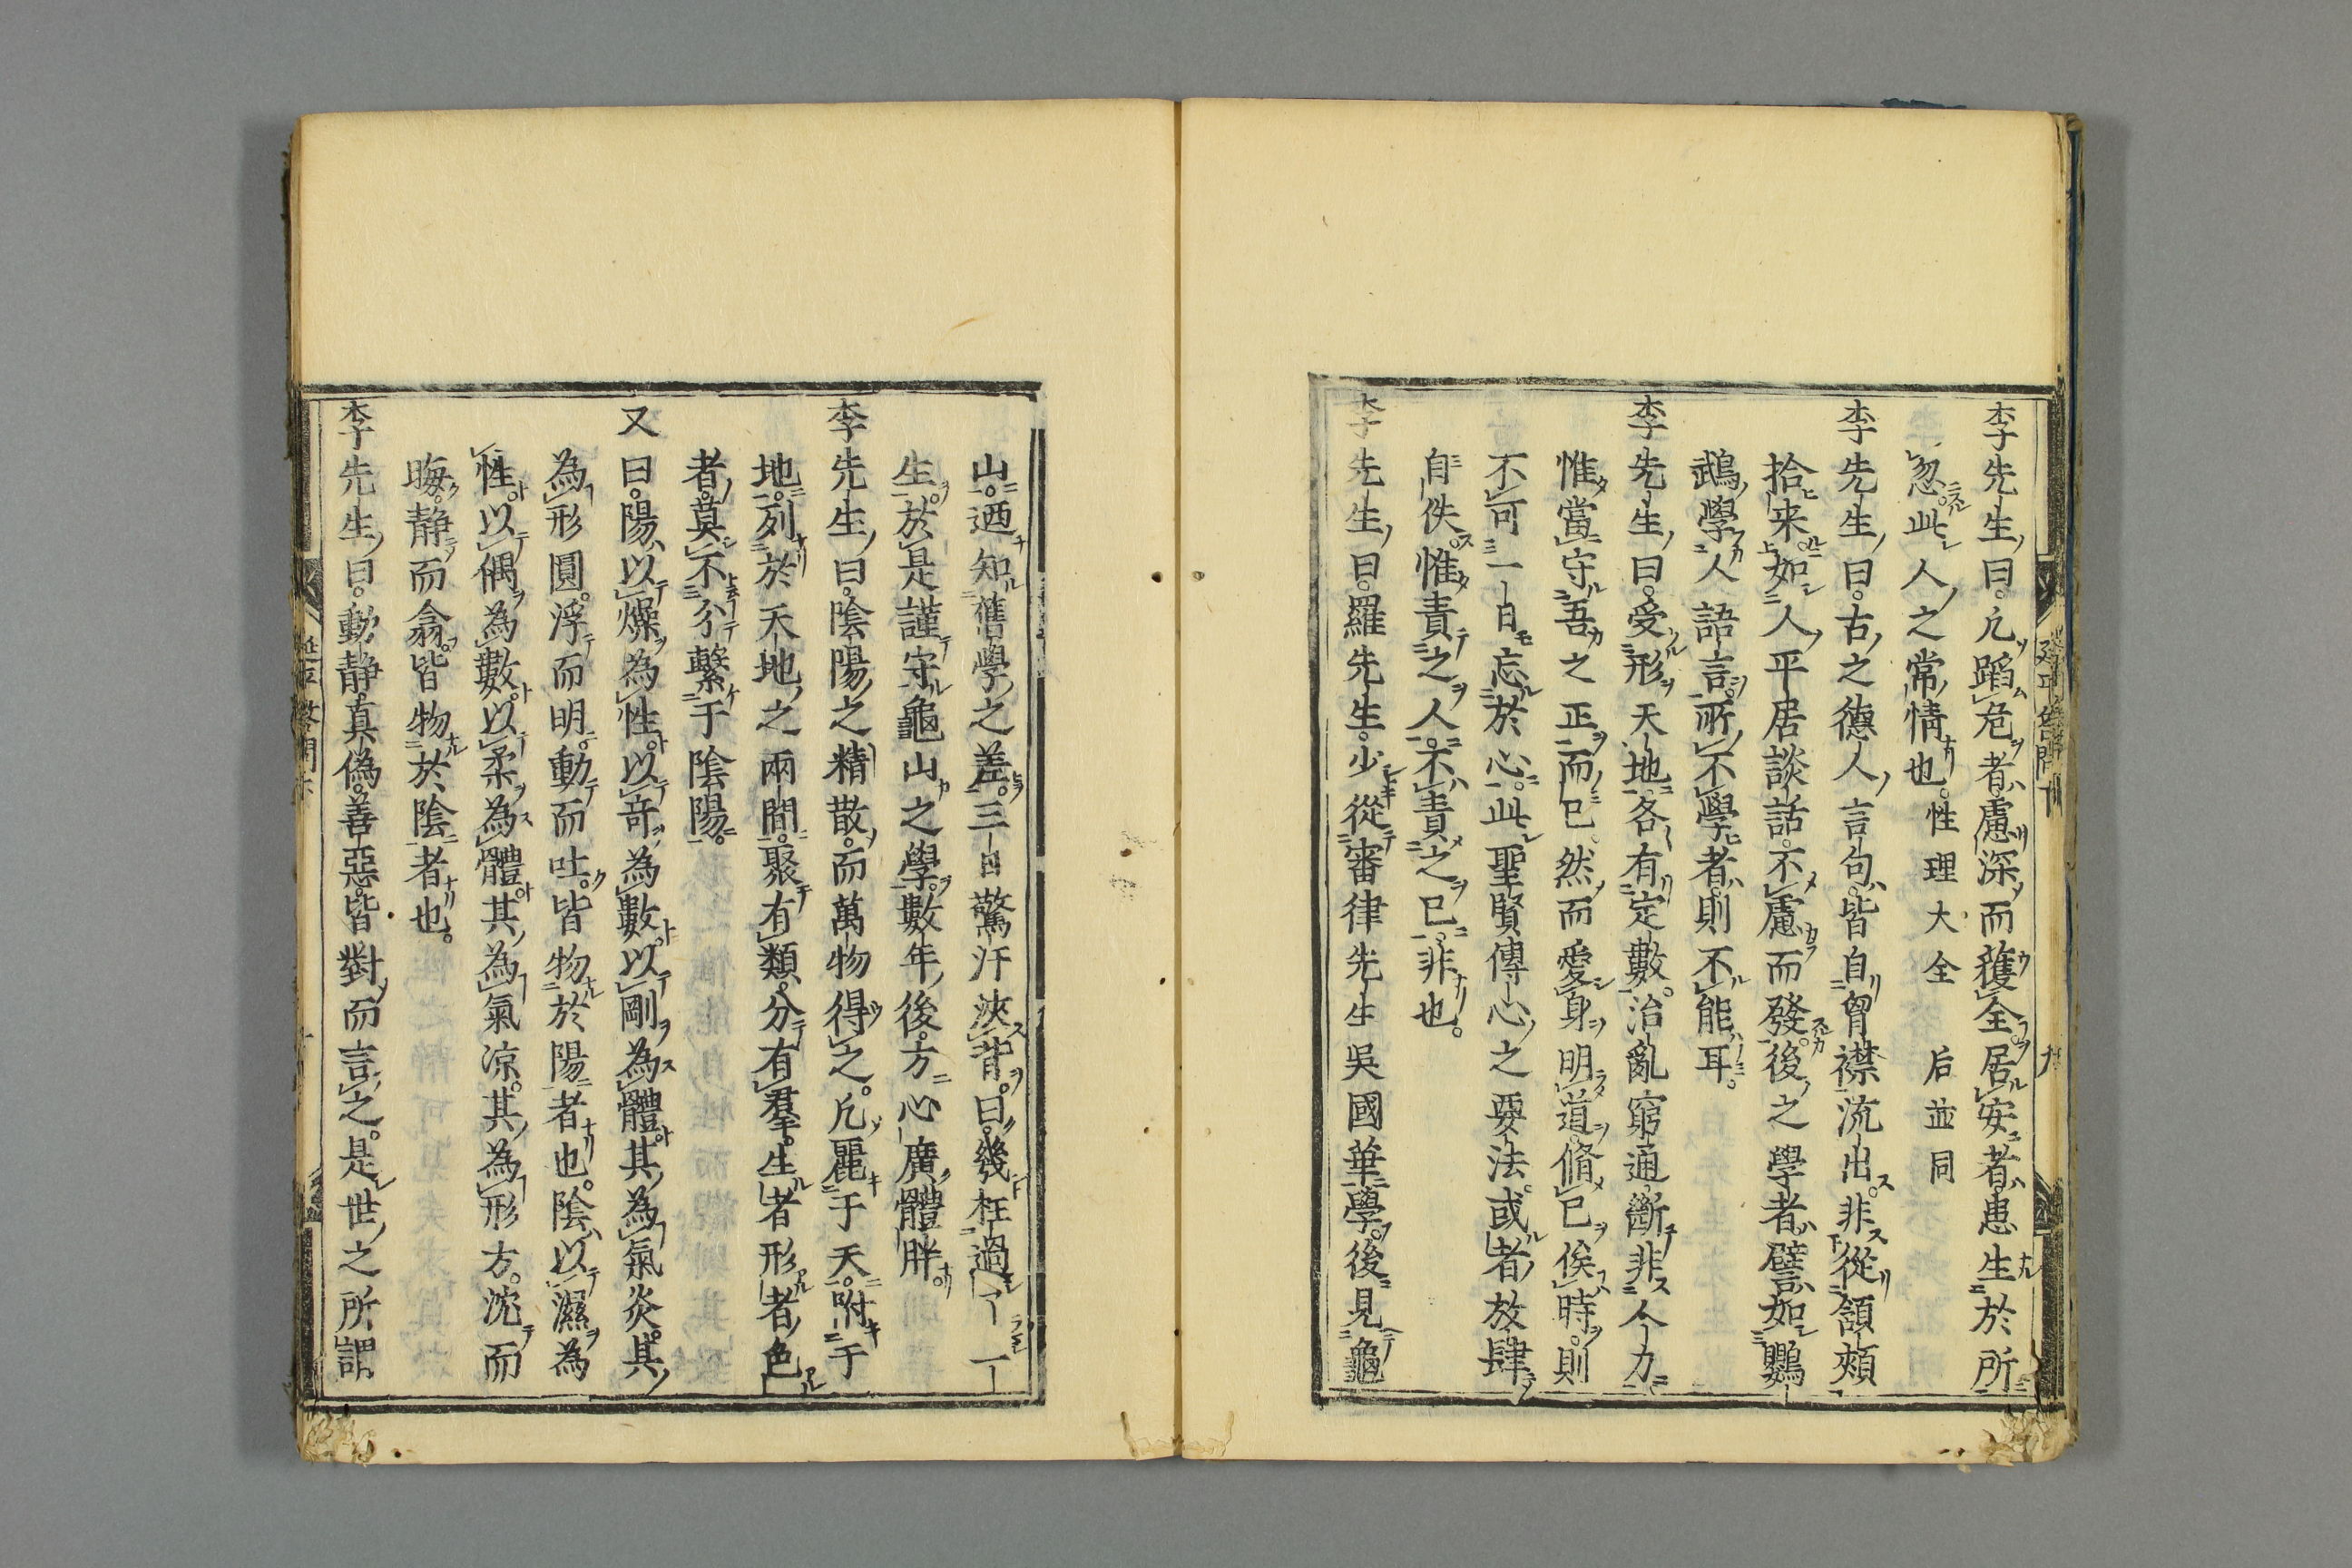 李先生曰。凢蹈危者。慮深而獲全。居安者。患生於所
忽。此人之常情也。性理大全 后並同
李先生曰。古之德人。言句。皆自胷襟流出。非從頷頰
拾来。如人平居談話。不慮而發。後之學者。譬如鸚
鵡學人語言。所不學者。則不能耳。
李先生曰。受形天地。各有定數。治亂窮通。斷非人力。
惟當守吾之正而已。然而愛身明道。脩已俟時。則
不可一日忘於心。此聖賢傳心之要法。或者放肆
自佚。惟責之人。不責之已。非也。
李先生曰。羅先生少從審律先生吳國華學。後見龜
山。迺知舊學之差。三日驚汗浹背。曰。幾枉過了一
生。於是謹守龜山之學。數年後。方心廣體胖。
李先生曰。陰陽之精散。而萬物得之。凢麗于天。附于
地。列於天地之兩間。聚有類。分有羣。生者形者色
者。莫不分繫于陰陽。
又曰。陽以燥為性。以奇為數。以剛為體。其為氣炎。其
為形圓。浮而明。動而吐。皆物於陽者也。陰以濕為
性。以偶為數。以柔為體。其為氣凉。其為形方。沈而
晦。静而翕。皆物於陰者也。
李先生曰。動静真偽善惡。皆對而言之。是世之所謂